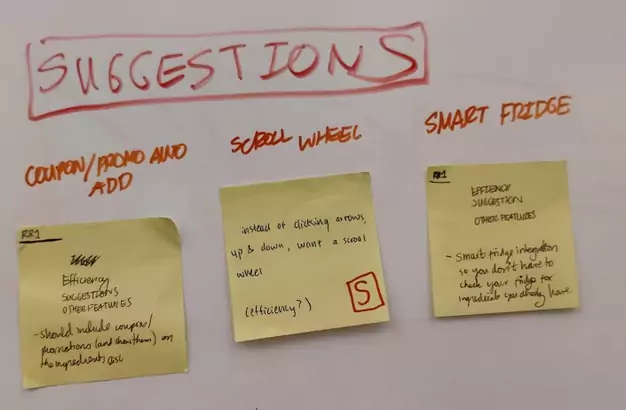 SUGGESTIONS
COUPON/PROMO AUTO
ADD
SCROLL WHEEL
SMART FRIDGE
RR1
Efficiency
SUGGESTIONS
OTHER FEATURES
- Should include coupon/
promotions (and show them) on
the ingredients list
instead of clicking arrows,
up & down, want a scroll
wheel
(efficiency?)
S
RR1
EFFICIENCY
SUGGESTION
OTHER FEATURES
- Smart fridge integration
so you don't have to
check your fridge for
ingredients you already have.